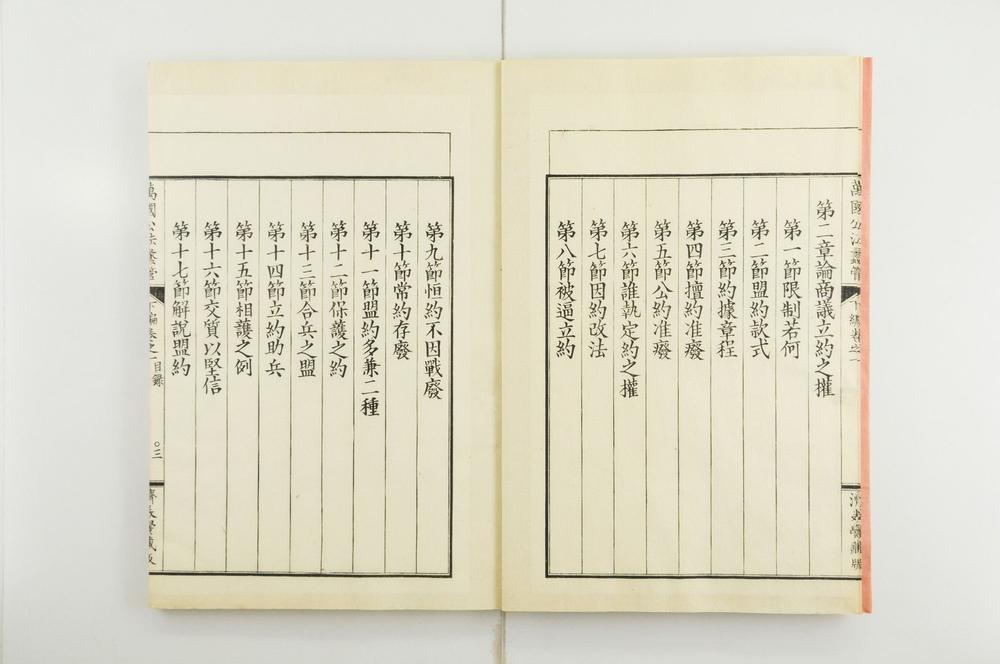 第二章論商議立約之權
第一節限制若何
第二節盟約款式
第三節約據章程
第四節擅約准癈
第五節公約准癈
第六節誰執定約之權
第七節因約改法
第八節被逼立約
第九節恒約不因戰廢
第十節常約存廢
第十一節盟約多兼二種
第十二節保護之約
第十三節合兵之盟
第十四節立約助兵
第十五節相護之例
第十六節交質以堅信
第十七節解說盟約
萬國公法蠡管
目錄
〇三